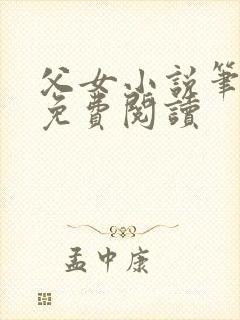 父女小说筆
免費閱讀
孟中康